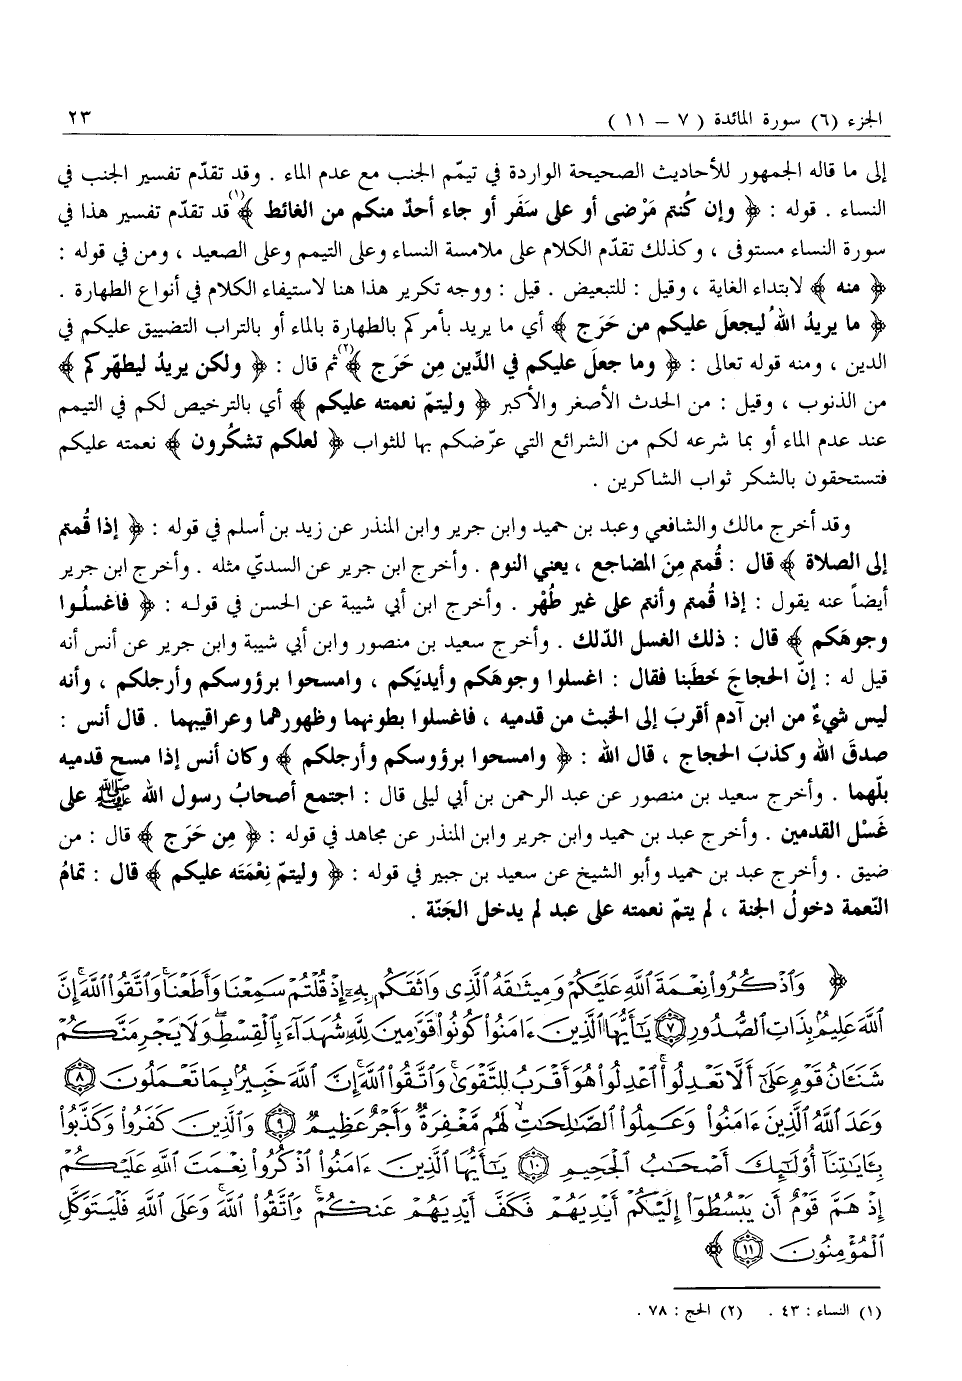 الجزء (٦) سورة المائدة ( ٧ – ١١ ) ٢٣
إلى ما قاله الجمهور للأحاديث الصحيحة الواردة في تيمّم الجنب مع عدم الماء . وقد تقدّم تفسير الجنب في
النساء . قوله : ﴿ وإن كُنتم مَرْضى أو على سَفَر أو جاء أحدٌ منكم من الغائط ﴾(١) قد تقدّم تفسير هذا في
سورة النساء مستوفى ، وكذلك تقدّم الكلام على ملامسة النساء وعلى التيمم وعلى الصعيد ، ومن في قوله :
﴿ منه ﴾ لابتداء الغاية ، وقيل : للتبعيض . قيل : ووجه تكرير هذا هنا لاستيفاء الكلام في أنواع الطهارة .
﴿ ما يريدُ اللهُ ليجعلَ عليكم من حَرَج ﴾ أي ما يريد بأمركم بالطهارة بالماء أو بالتراب التضييق عليكم في
الدين ، ومنه قوله تعالى : ﴿ وما جعلَ عليكم في الدِّين مِن حَرَج ﴾(٢) ثم قال : ﴿ ولكن يريدُ ليطهّركم ﴾
من الذنوب ، وقيل : من الحدث الأصغر والأكبر ﴿ وليتمّ نعمته عليكم ﴾ أي بالترخيص لكم في التيمم
عند عدم الماء أو بما شرعه لكم من الشرائع التي عرّضكم بها للثواب ﴿ لعلكم تشكُرون ﴾ نعمته عليكم
فتستحقون بالشكر ثواب الشاكرين .
وقد أخرج مالك والشافعي وعبد بن حميد وابن جرير وابن المنذر عن زيد بن أسلم في قوله : ﴿ إذا قُمتم
إلى الصلاة ﴾ قال : قُمتم مِنَ المضاجع ، يعني النوم . وأخرج ابن جرير عن السديّ مثله . وأخرج ابن جرير
أيضاً عنه يقول : إذا قُمتم وأنتم على غير طُهْر . وأخرج ابن أبي شيبة عن الحسن في قوله : ﴿ فاغسلُوا
وجوهَكم ﴾ قال : ذلك الغسل الدّلك . وأخرج سعيد بن منصور وابن أبي شيبة وابن جرير عن أنس أنه
قيل له : إنّ الحجاجَ خَطَبنا فقال : اغسلوا وجوهَكم وأيديَكم ، وامسحوا برؤوسكم وأرجلكم ، وأنه
ليس شيءٌ من ابن آدم أقربَ إلى الخبث من قدميه ، فاغسلوا بطونهما وظهورهما وعراقيبهما . قال أنس :
صدقَ الله وكذبَ الحجاج ، قال الله : ﴿ وامسحوا برؤوسكم وأرجلكم ﴾ وكان أنس إذا مسح قدميه
بلّهما . وأخرج سعيد بن منصور عن عبد الرحمن بن أبي ليلى قال : اجتمع أصحابُ رسول الله ﷺ على
غَسْل القدمين . وأخرج عبد بن حميد وابن جرير وابن المنذر عن مجاهد في قوله : ﴿ مِن حَرَج ﴾ قال : من
ضيق . وأخرج عبد بن حميد وأبو الشيخ عن سعيد بن جبير في قوله : ﴿ وليتمّ نِعْمَتَه عليكم ﴾ قال : تمامُ
النّعمة دخولُ الجنة ، لم يتمّ نعمته على عبد لم يدخل الجَنّة .
﴿ وَٱذْكُرُوا۟ نِعْمَةَ ٱللَّهِ عَلَيْكُمْ وَمِيثَٰقَهُ ٱلَّذِى وَاثَقَكُم بِهِۦٓ إِذْ قُلْتُمْ سَمِعْنَا وَأَطَعْنَا وَٱتَّقُوا۟ ٱللَّهَ إِنَّ
ٱللَّهَ عَلِيمٌۢ بِذَاتِ ٱلصُّدُورِ ٧ يَٰٓأَيُّهَا ٱلَّذِينَ ءَامَنُوا۟ كُونُوا۟ قَوَّٰمِينَ لِلَّهِ شُهَدَآءَ بِٱلْقِسْطِ وَلَا يَجْرِمَنَّكُمْ
شَنَـَٔانُ قَوْمٍ عَلَىٰٓ أَلَّا تَعْدِلُوا۟ ٱعْدِلُوا۟ هُوَ أَقْرَبُ لِلتَّقْوَىٰ وَٱتَّقُوا۟ ٱللَّهَ إِنَّ ٱللَّهَ خَبِيرٌۢ بِمَا تَعْمَلُونَ ٨
وَعَدَ ٱللَّهُ ٱلَّذِينَ ءَامَنُوا۟ وَعَمِلُوا۟ ٱلصَّٰلِحَٰتِ لَهُم مَّغْفِرَةٌ وَأَجْرٌ عَظِيمٌ ٩ وَٱلَّذِينَ كَفَرُوا۟ وَكَذَّبُوا۟
بِـَٔايَٰتِنَآ أُو۟لَٰٓئِكَ أَصْحَٰبُ ٱلْجَحِيمِ ١٠ يَٰٓأَيُّهَا ٱلَّذِينَ ءَامَنُوا۟ ٱذْكُرُوا۟ نِعْمَتَ ٱللَّهِ عَلَيْكُمْ
إِذْ هَمَّ قَوْمٌ أَن يَبْسُطُوٓا۟ إِلَيْكُمْ أَيْدِيَهُمْ فَكَفَّ أَيْدِيَهُمْ عَنكُمْ وَٱتَّقُوا۟ ٱللَّهَ وَعَلَى ٱللَّهِ فَلْيَتَوَكَّلِ
ٱلْمُؤْمِنُونَ ١١ ﴾
(١) النساء : ٤٣ . (٢) الحج : ٧٨ .